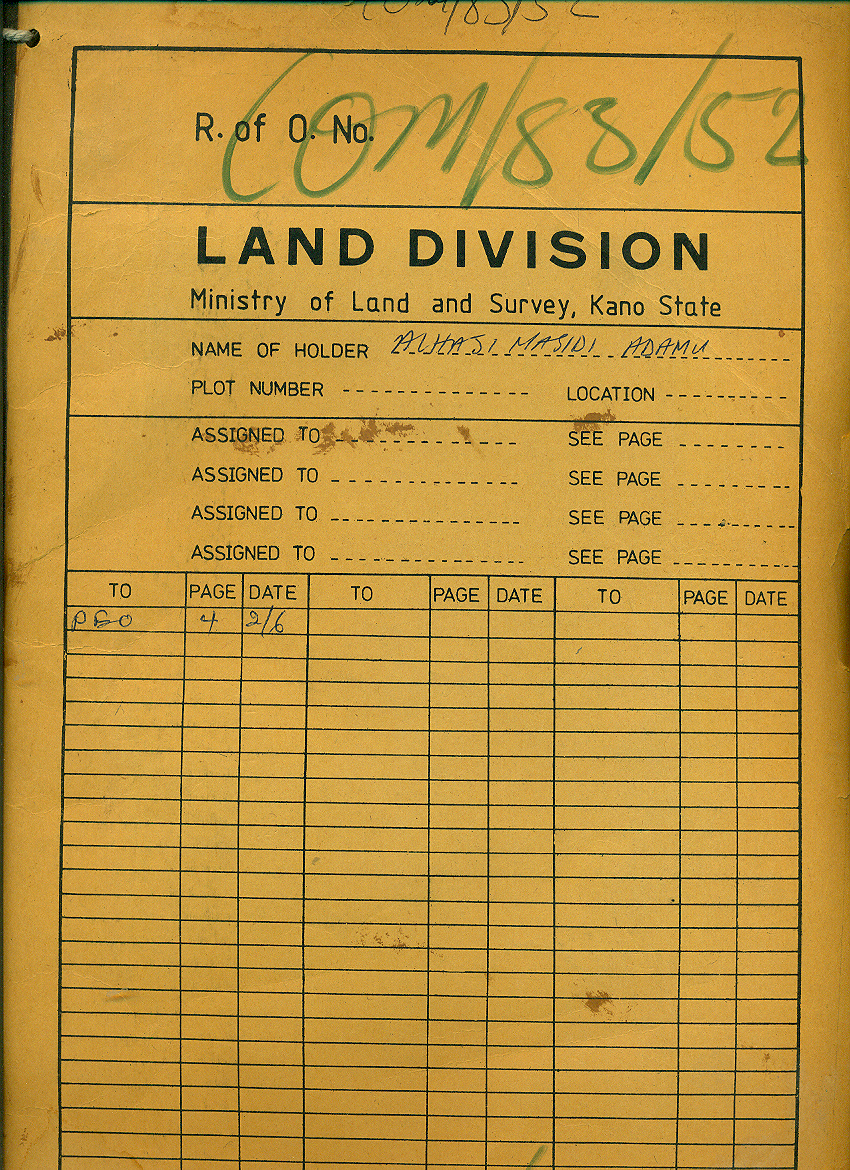 COM/83/52
R. of O. No. COM/83/52
LAND DIVISION
Ministry of Land and Survey, Kano State
NAME OF HOLDER ALHAJI MASIDI ADAMU
PLOT NUMBER LOCATION
ASSIGNED TO SEE PAGE
ASSIGNED TO SEE PAGE
ASSIGNED TO SEE PAGE
ASSIGNED TO SEE PAGE
TO PAGE DATE TO PAGE DATE TO PAGE DATE
4 2/6